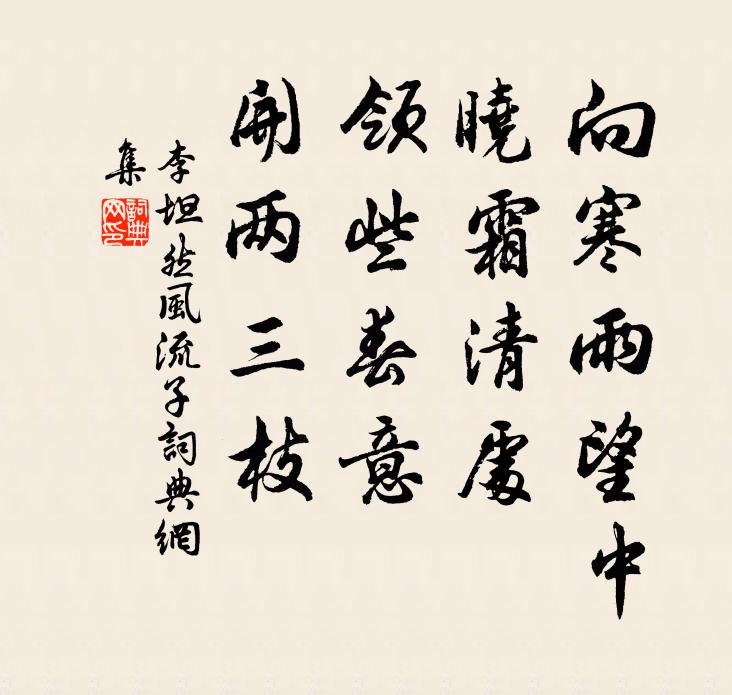 向寒雨望中
曉霜清處
領些春意
開两三枝
李坦然風流子詞典網
集
詞典
网印